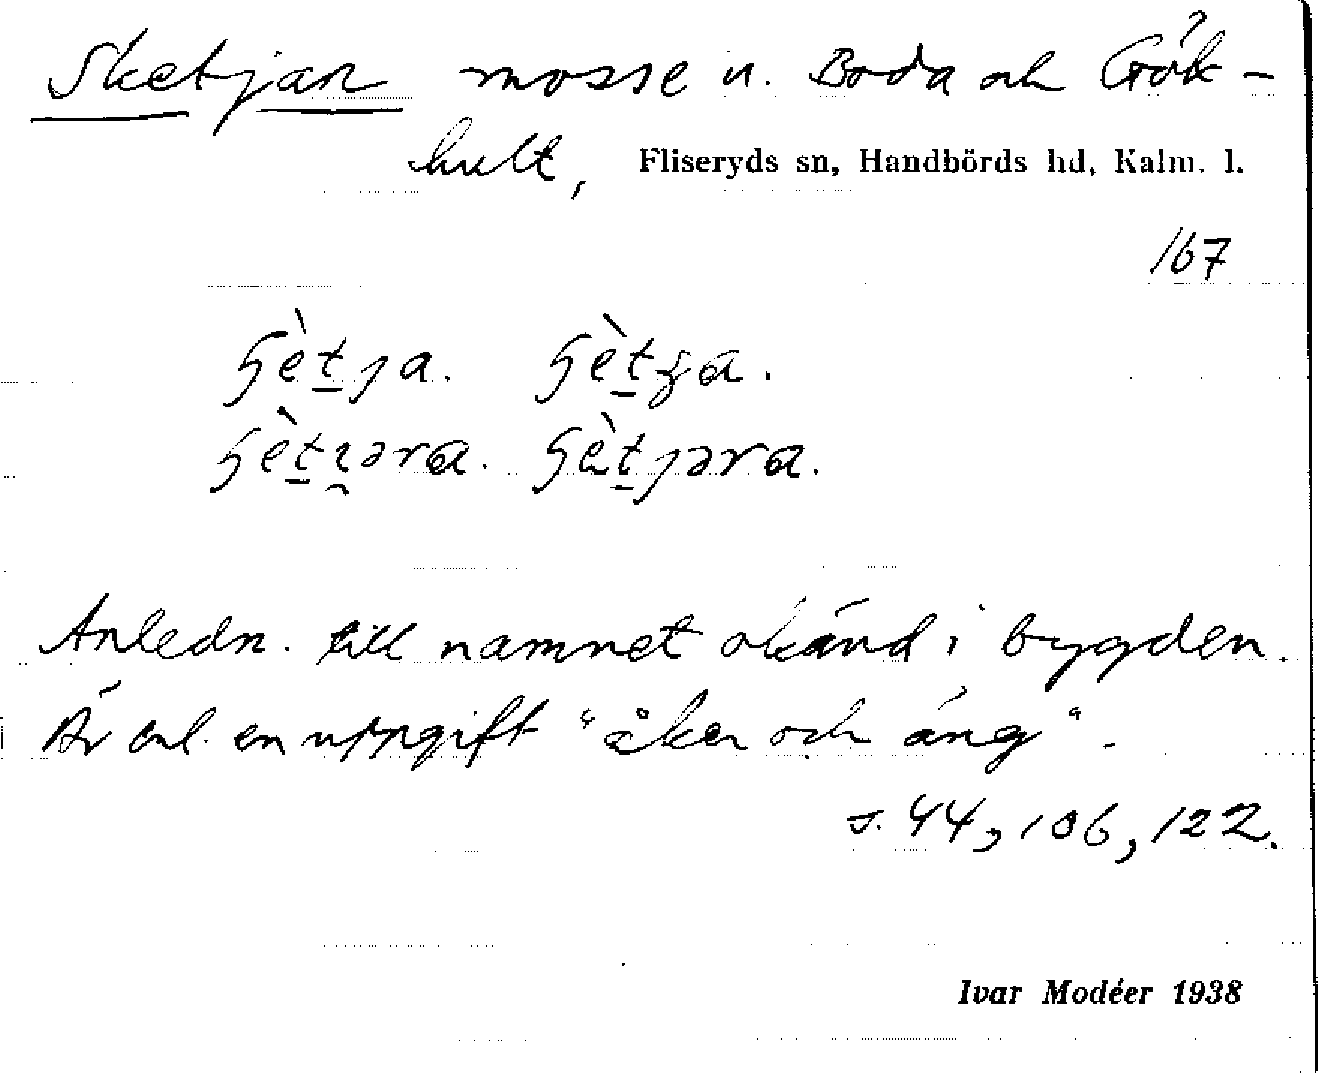 Sketjan mosse u. Boda och Gök-
hult, Fliseryds sn, Handbörds hd, Kalm. l.
167
Anledn. till namnet okänd i bygden.
Är enl. en uppgift "åker och äng".
s. 44, 106, 122.
Ivar Modéer 1938